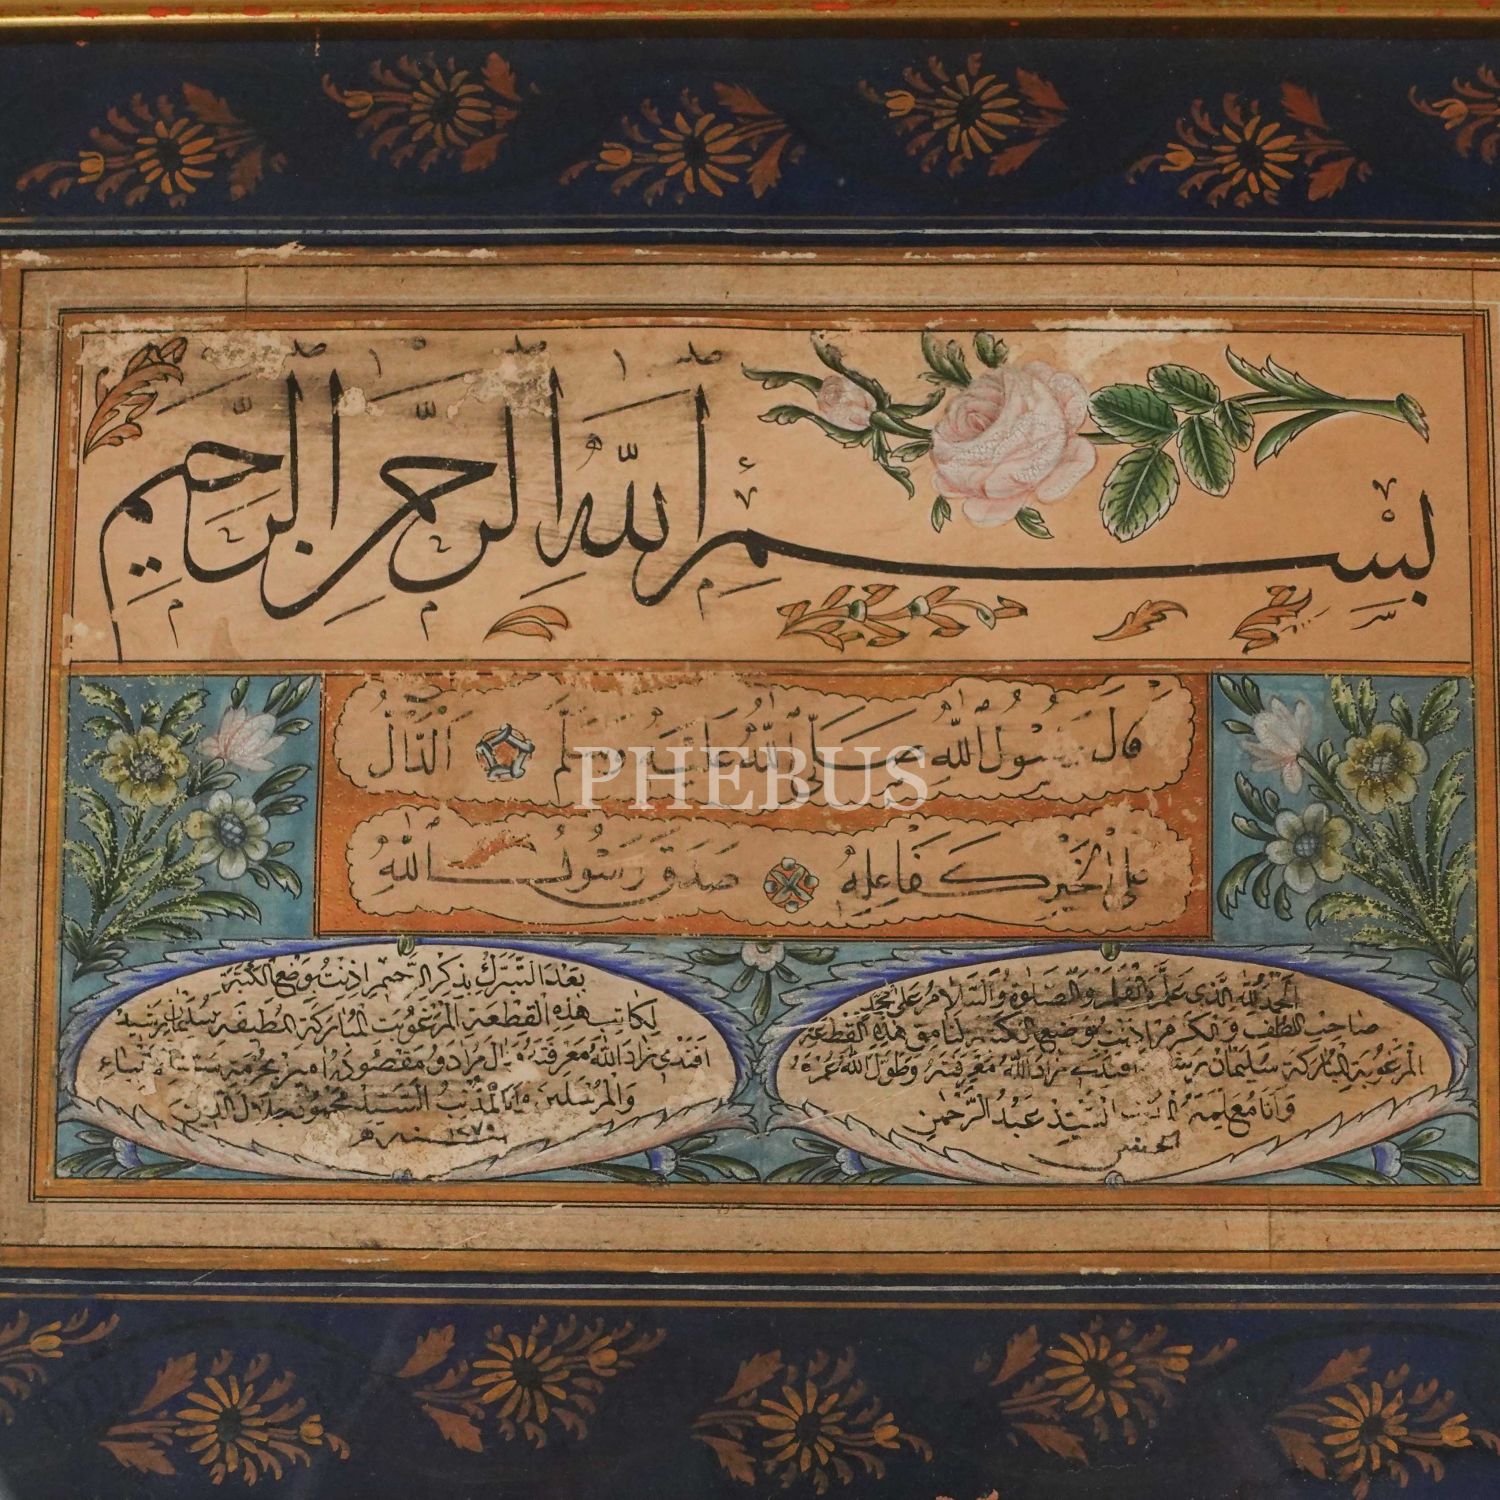 بسم الله الرحمن الرحيم
قال رسول الله صلى الله عليه وسلم الدال
على الخير كفاعله صدق رسول الله
الحمد لله الذي علم بالقلم والصلوة والسلام على محمد
صاحب اللطف والكرم اذنت بوضع الكتبة لنامق هذه القطعة
المرغوبة المباركة سليمان رشد افندى زاد الله معرفته وطول الله عمره
وانا معلمه السيد عبد الرحمن
الحلمى
بعد التبرك بذكر الرحيم اذنت بوضع الكتبة
لكاتب هذه القطعة المرغوبة المباركة اللطيفة سليمان رشيد
افندى زاد الله معرفته ونال مراده ومقصوده امين بحرمة
والمرسلين وانا المذنب السيد محمود جلال الدين
سنه ١٢٧٩
PHEBUS